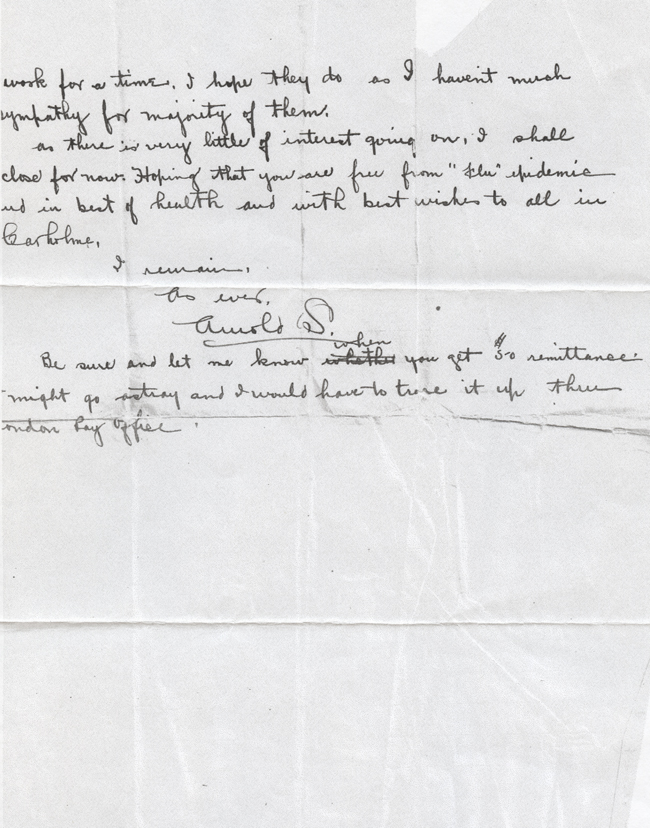 work for a time. I hope they do as I havent much
sympathy for majority of them.
as there is very little of interest going on, I shall
close for now. Hoping that you are free from "flu" epidemic
nd in best of health and with best wishes to all in
Carholme,
I remain,
As ever,
Arnold S.
when
Be sure and let me know whether you get $50 remittance.
might go astray and I would have to trace it up thru
ondon Pay Office.